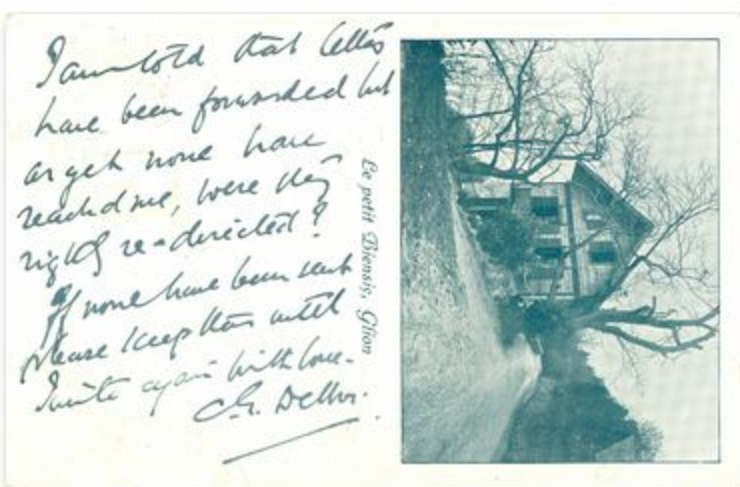 I am told that letters
have been forwarded but
as yet none have
reached me, were they
rightly re-directed?
If none have been sent
please keep them until
I write again with love.
C.G.
Le petit Biensis, Glion